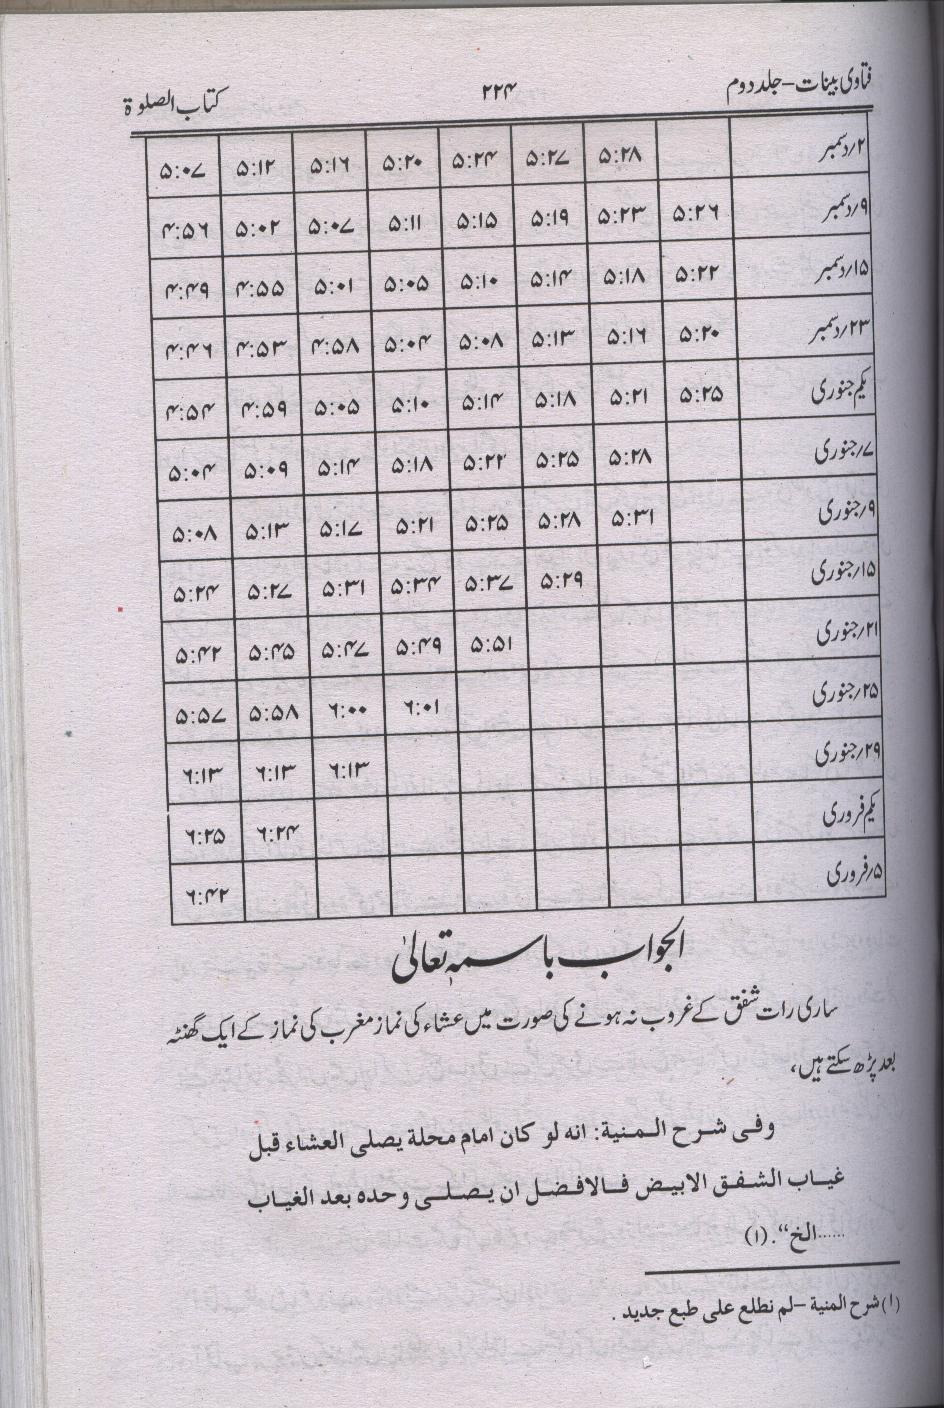 فتاویٰ بینات – جلد دوم ۲۲۴ کتاب الصلوٰة
۲/دسمبر ۵:۲۸ ۵:۲۷ ۵:۲۴ ۵:۲۰ ۵:۱۶ ۵:۱۲ ۵:۰۷
۹/دسمبر ۵:۲۶ ۵:۲۳ ۵:۱۹ ۵:۱۵ ۵:۱۱ ۵:۰۷ ۵:۰۲ ۴:۵۶
۱۵/دسمبر ۵:۲۲ ۵:۱۸ ۵:۱۴ ۵:۱۰ ۵:۰۵ ۵:۰۱ ۴:۵۵ ۴:۴۹
۲۳/دسمبر ۵:۲۰ ۵:۱۶ ۵:۱۳ ۵:۰۸ ۵:۰۴ ۴:۵۸ ۴:۵۳ ۴:۴۶
یکم جنوری ۵:۲۵ ۵:۲۱ ۵:۱۸ ۵:۱۴ ۵:۱۰ ۵:۰۵ ۴:۵۹ ۴:۵۴
۷/جنوری ۵:۲۸ ۵:۲۵ ۵:۲۲ ۵:۱۸ ۵:۱۴ ۵:۰۹ ۵:۰۴
۹/جنوری ۵:۳۱ ۵:۲۸ ۵:۲۵ ۵:۲۱ ۵:۱۷ ۵:۱۳ ۵:۰۸
۱۵/جنوری ۵:۲۹ ۵:۳۷ ۵:۳۴ ۵:۳۱ ۵:۲۷ ۵:۲۴
۲۱/جنوری ۵:۵۱ ۵:۴۹ ۵:۴۷ ۵:۴۵ ۵:۴۲
۲۵/جنوری ۶:۰۱ ۶:۰۰ ۵:۵۸ ۵:۵۷
۲۹/جنوری ۶:۱۳ ۶:۱۳ ۶:۱۳
یکم فروری ۶:۲۴ ۶:۲۵
۵/فروری ۶:۴۲
الجواب باسمہٖ تعالیٰ
ساری رات شفق کے غروب نہ ہونے کی صورت میں عشاء کی نماز مغرب کی نماز کے ایک گھنٹہ
بعد پڑھ سکتے ہیں،
وفی شرح المنیة: انه لو كان امام محلة يصلى العشاء قبل
غياب الشفق الابيض فالافضل ان يصلى وحده بعد الغياب
......الخ“. (۱)
(۱) شرح المنیة – لم نطلع علی طبع جدید .